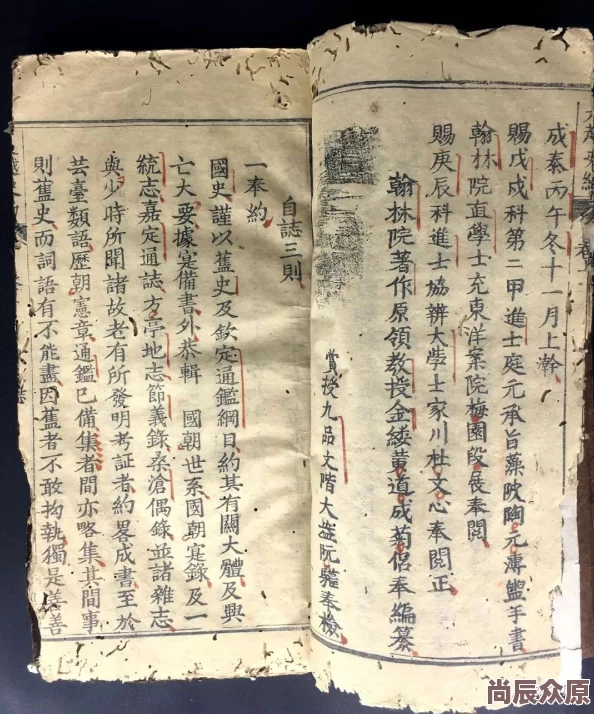 成泰丙午冬十一月上澣
賜戊戌科第二甲進士庭元承旨藻陂陶元溥盥手書
翰林院直學士充東洋案院梅園段展奉閱
賜庚辰科進士協辨大學士家川杜文心奉閱正
翰林院著作原領教授金縷黃道成菊侶奉編纂
賞授九品文階大盜阮奉檢
自誌三則
一奉約
國史謹以舊史及欽定通鑑綱目約其有關大體及興
亡大要據寔備書外恭輯 國朝世系國朝寔錄及一
統志嘉定通誌方亭地志節義錄桑滄偶錄並諸雜志
與少時所聞諸故老有所發明考証者約畧成書至於
芸臺類語歷朝憲章通鑑已備集者間亦略集其間事
則舊史而詞語有不能盡因舊者不敢拘執獨是善善
尚辰众原